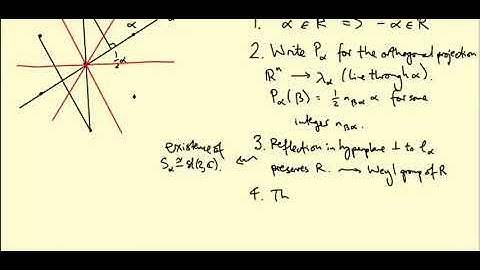 α
½α
1. α ∈ R => -α ∈ R
2. Write Pα for the orthogonal projection
ℝⁿ → λα (line through α).
Pα(β) = ½ nβα α for some
integer nβα.
existence of
Sα ≅ sl(2,ℂ).
3. Reflection in hyperplane ⊥ to ℓα
preserves R. → Weyl group of R
4. Th